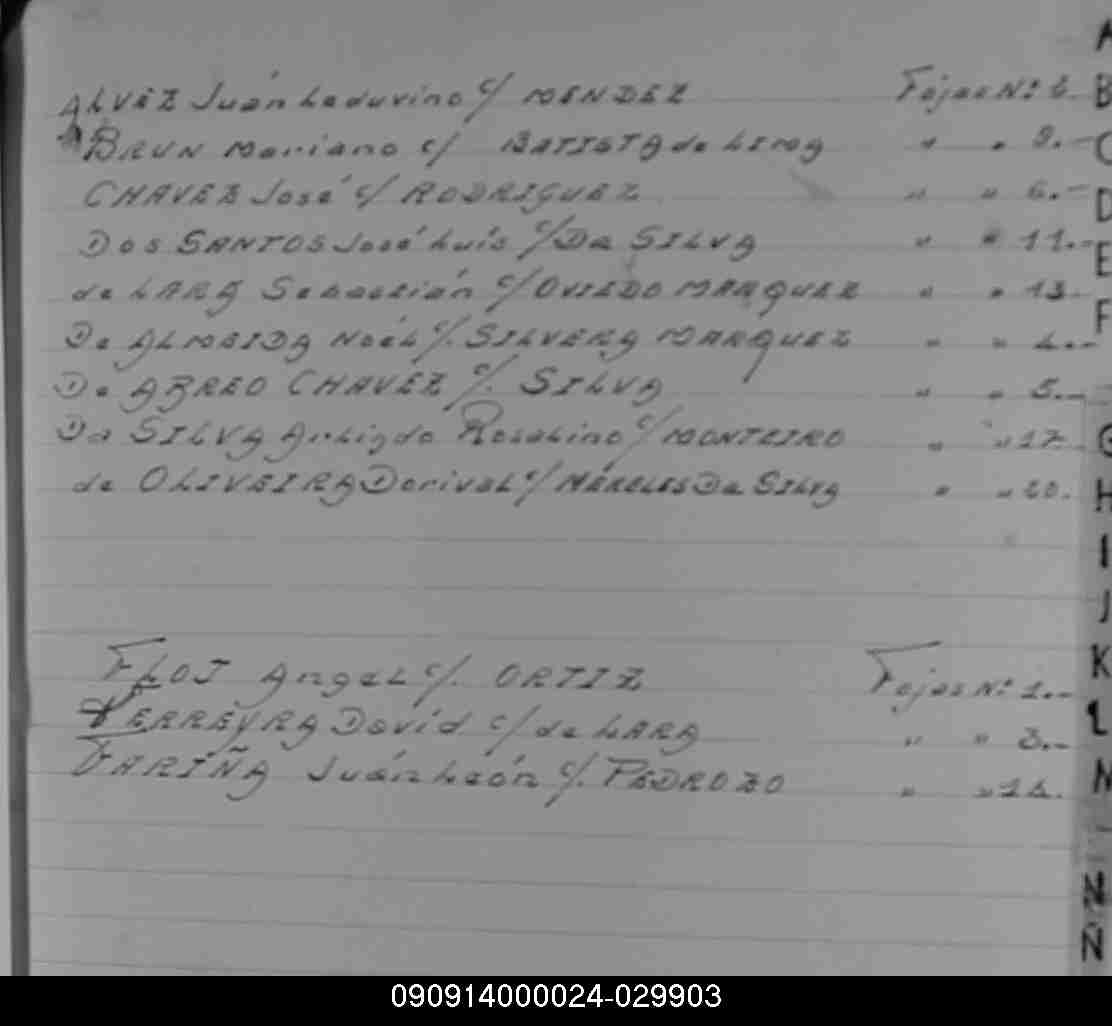 ALVEZ Juán Laduvino c/ MENDEZ Fojas Nº
BRUN Mariano c/ BATISTA de LIMA " " 9.-
CHAVEZ José c/ RODRIGUEZ " " 6.-
Dos SANTOS José Luís c/ Da SILVA " " 11.-
de LARA Sebastián c/ OVIEDO MARQUEZ " " 13.
De ALMEIDA Noél c/. SILVERA MARQUEZ " "
De ABREO CHAVEZ c/. SILVA " " 5.-
Da SILVA Rosalino c/ MONTEIRO " " 17.
de OLIVEIRA Dorival c/ Da SILVA " " 20.
FLOJ Angel c/. ORTIZ Fojas Nº 1.-
FERREYRA David c/ de LARA " " 3.-
FARIÑA Juán León c/. PEDROZO " "
A
B
C
D
E
F
G
H
I
J
K
L
M
N
Ñ
090914000024-029903